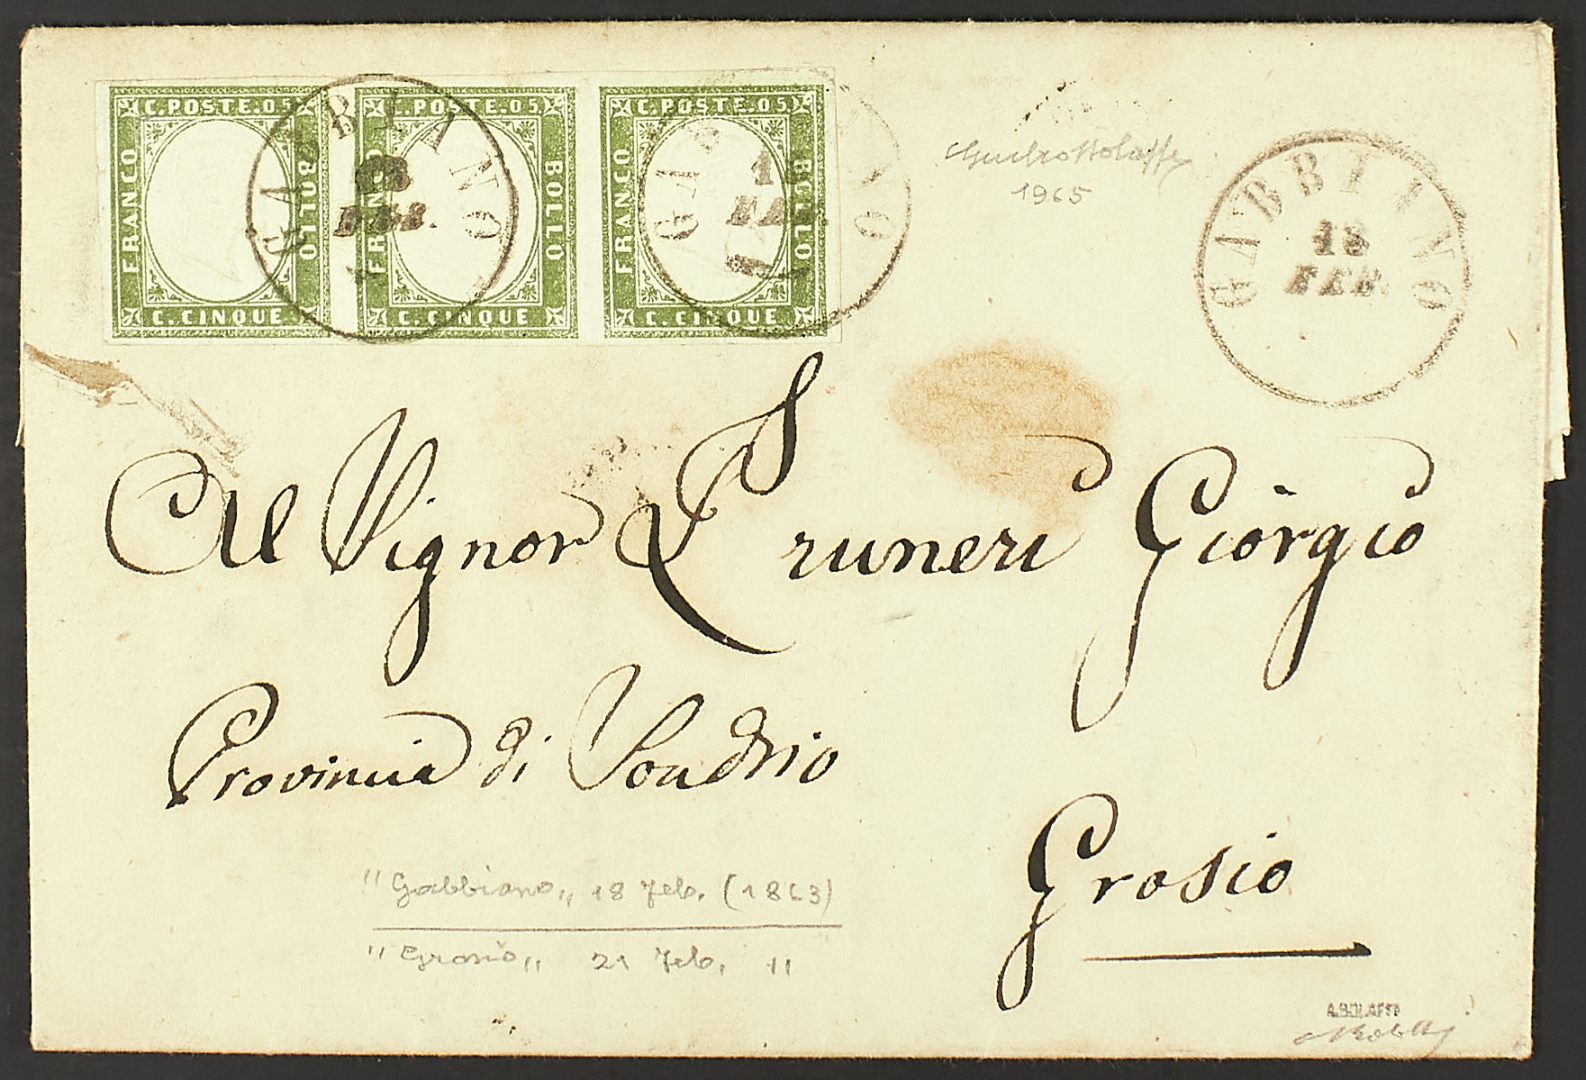 C.POSTE.05 C.POSTE.05 C.POSTE.05
FRANCO BOLLO FRANCO BOLLO FRANCO BOLLO
C.CINQUE C.CINQUE C.CINQUE
GABBIANO
18
FEB.
GABBIANO
18
FEB.
GABBIANO
18
FEB.
1965
Al Signor Pruneri Giorgio
Provincia di Sondrio
Grosio
"Gabbiano„ 18 Feb. (1863)
"Grosio„ 21 Feb. "
A.BOLAFFI